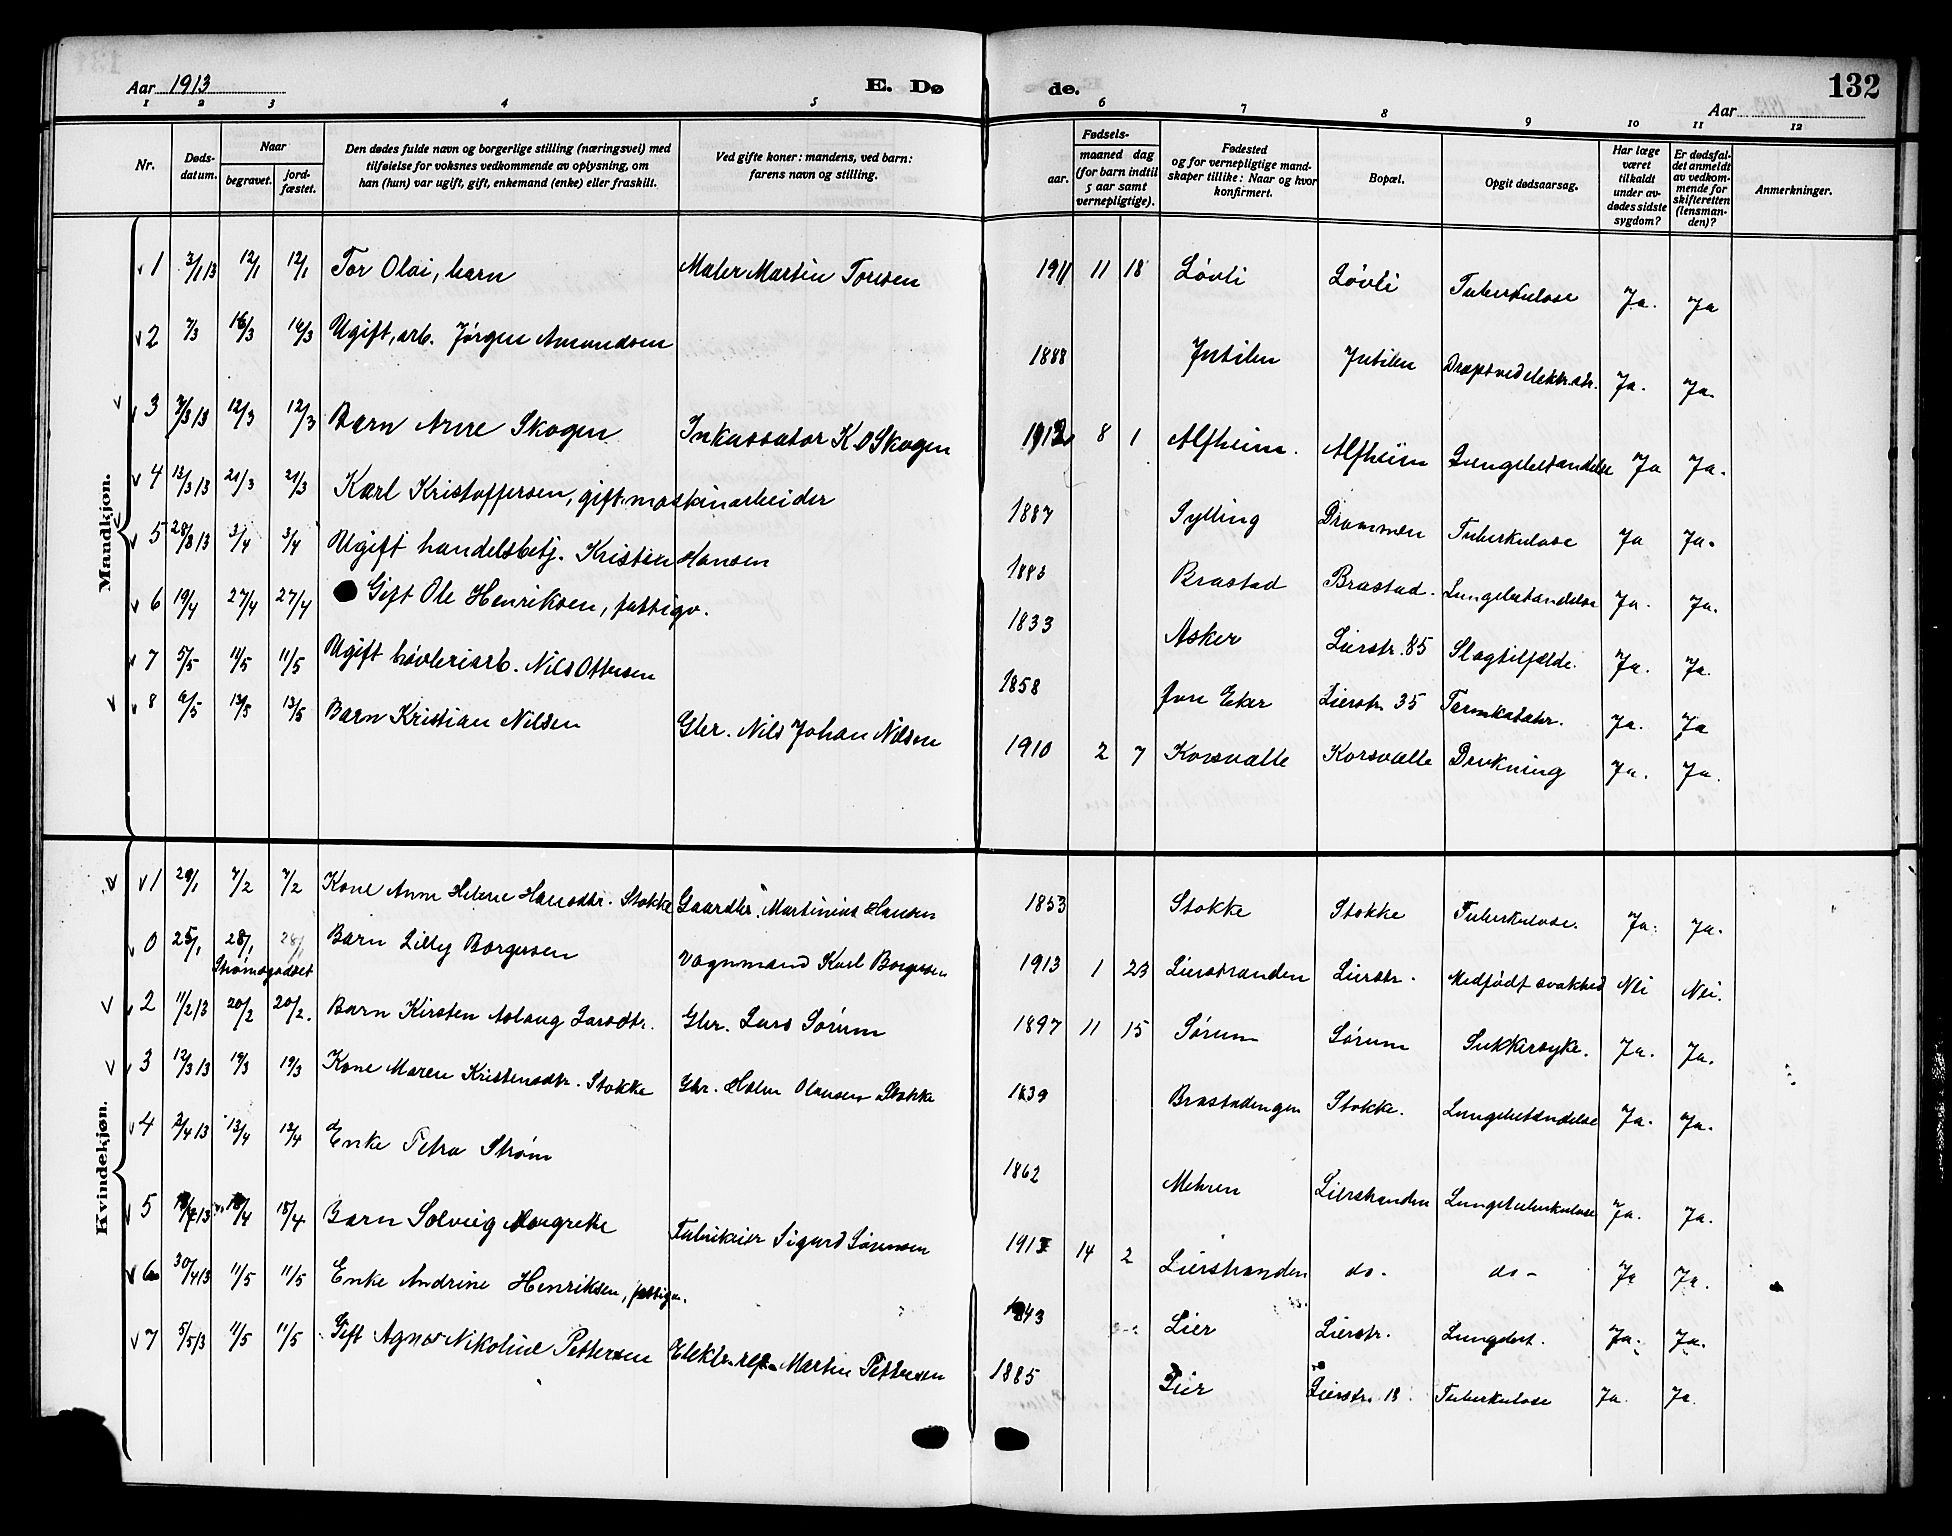 Aar 1913 E. Dø de. Aar 132
1 2 3 4 5 6 7 8 9 10 11 12
Nr. Døds-datum. Naar begravet. jord-fæstet. Den dødes fulde navn og borgerlige stilling (næringsvei) med tilføielse for voksnes vedkommende av oplysning, om han (hun) var ugift, gift, enkemand (enke) eller fraskilt. Ved gifte koner: mandens, ved barn: farens navn og stilling. Fødsels- aar. maaned dag (for barn indtil 5 aar samt vernepligtige). Fødested og for vernepligtige mand-skaper tillike: Naar og hvor konfirmert. Bopæl. Opgit dødsaarsag. Har læge været tilkaldt under av-dødes sidste sygdom? Er dødsfal-det anmeldt av vedkom-mende for skifteretten (lensman-den)? Anmerkninger.
Mandkjøn.
1 3/1 13 12/1 12/1 Tor Olai, barn Maler Martin Toresen 1911 11 18 Løvli Løvli Tuberkulose Ja. Ja
2 7/3 16/3 16/3 Ugift, arb. Jørgen Amundsen 1888 Jutilen Jutilen Dræpt ved elektr. str. Ja. Ja.
3 7/3 13 12/3 12/3 Barn Arne Skogen Inkassator K. O Skogen 1912 8 1 Alfheim. Alfheim Lungebetændelse Ja Ja.
4 13/3 13 21/3 21/3 Karl Kristoffersen, gift, maskinarbeider 1887 Sylling Drammen Tuberkulose Ja Ja.
5 28/3 13 3/4 3/4 Ugift handelsbetj. Kristian Hansen Brastad Brastad. Lungebetændelse Ja. Ja.
6 19/4 27/4 27/4 Gift Ole Henriksen, fattigv. 1833 Asker Lierstr. 85 Slagtilfælde. Ja. Ja.
7 5/5 11/5 11/5 Ugift høvleriarb. Nils Ottersen 1858 Øvre Eker Lierstr. 35 Tarmkatarr. Ja. Ja
8 6/5 13/5 13/5 Barn Kristian Nilsen Gbr. Nils Johan Nilsen 1910 2 7 Korsvalle Korsvalle Drukning Ja. Ja.
Kvindekjøn.
1 29/1 7/2 7/2 Kone Anne Helene Hansdtr. Stokke Gaardbr. Martinius Hansen 1853 Stokke Stokke Tuberkulose. Ja. Ja.
0 25/1 28/1 28/1 Barn Lilly Borgersen Vognmand Karl Borgersen 1913 1 23 Lierstranden Lierstr. Medfødt svakhed Nei Nei.
Strømsgodset
2 11/2 13 20/2 20/2. Barn Kirsten Aslaug Larsdtr. Gbr. Lars Sørum 1897 11 15 Sørum Sørum Sukkersyke. Ja. Ja.
3 12/3 13 19/3 19/3 Kone Maren Kristensdtr. Stokke Gbr. Olausen Stokke 1839 Brastadengen Stokke. Lungebetændelse Ja. Ja.
4 2/4 13 13/4 13/4 Enke Petra Strøm 1862 Mehren Lierstranden Lungetuberkulose Ja. Ja.
5 13 18/4 18/4 Barn Solveig Margrethe Fabrikeier Sigurd Sørensen 14 2 Lierstranden do. do. Ja Ja.
6 30/4 13 11/5 11/5 Enke Andrine Henriksen, fattigv. 1843 Lier Lierstr. Lungebet. Ja. Ja.
7 5/5 13 11/5 11/5 Gift Agnes Nikoline Pettersen Elektr. rep. Martin Pettersen 1885 Lier Lierstr. 18. Tuberkulose Ja. Ja.